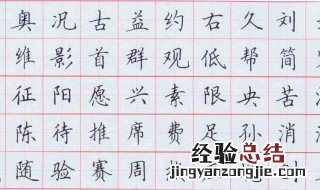 奥况古益约右久刘
维影首群观低帮简
征阳愿兴素限央苦
陈待推席费足孙消
随验赛周
经验总结
www.jingyanzongjie.com